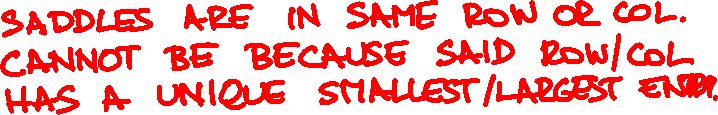 SADDLES ARE IN SAME ROW OR COL.
CANNOT BE BECAUSE SAID ROW/COL
HAS A UNIQUE SMALLEST/LARGEST ENTRY.